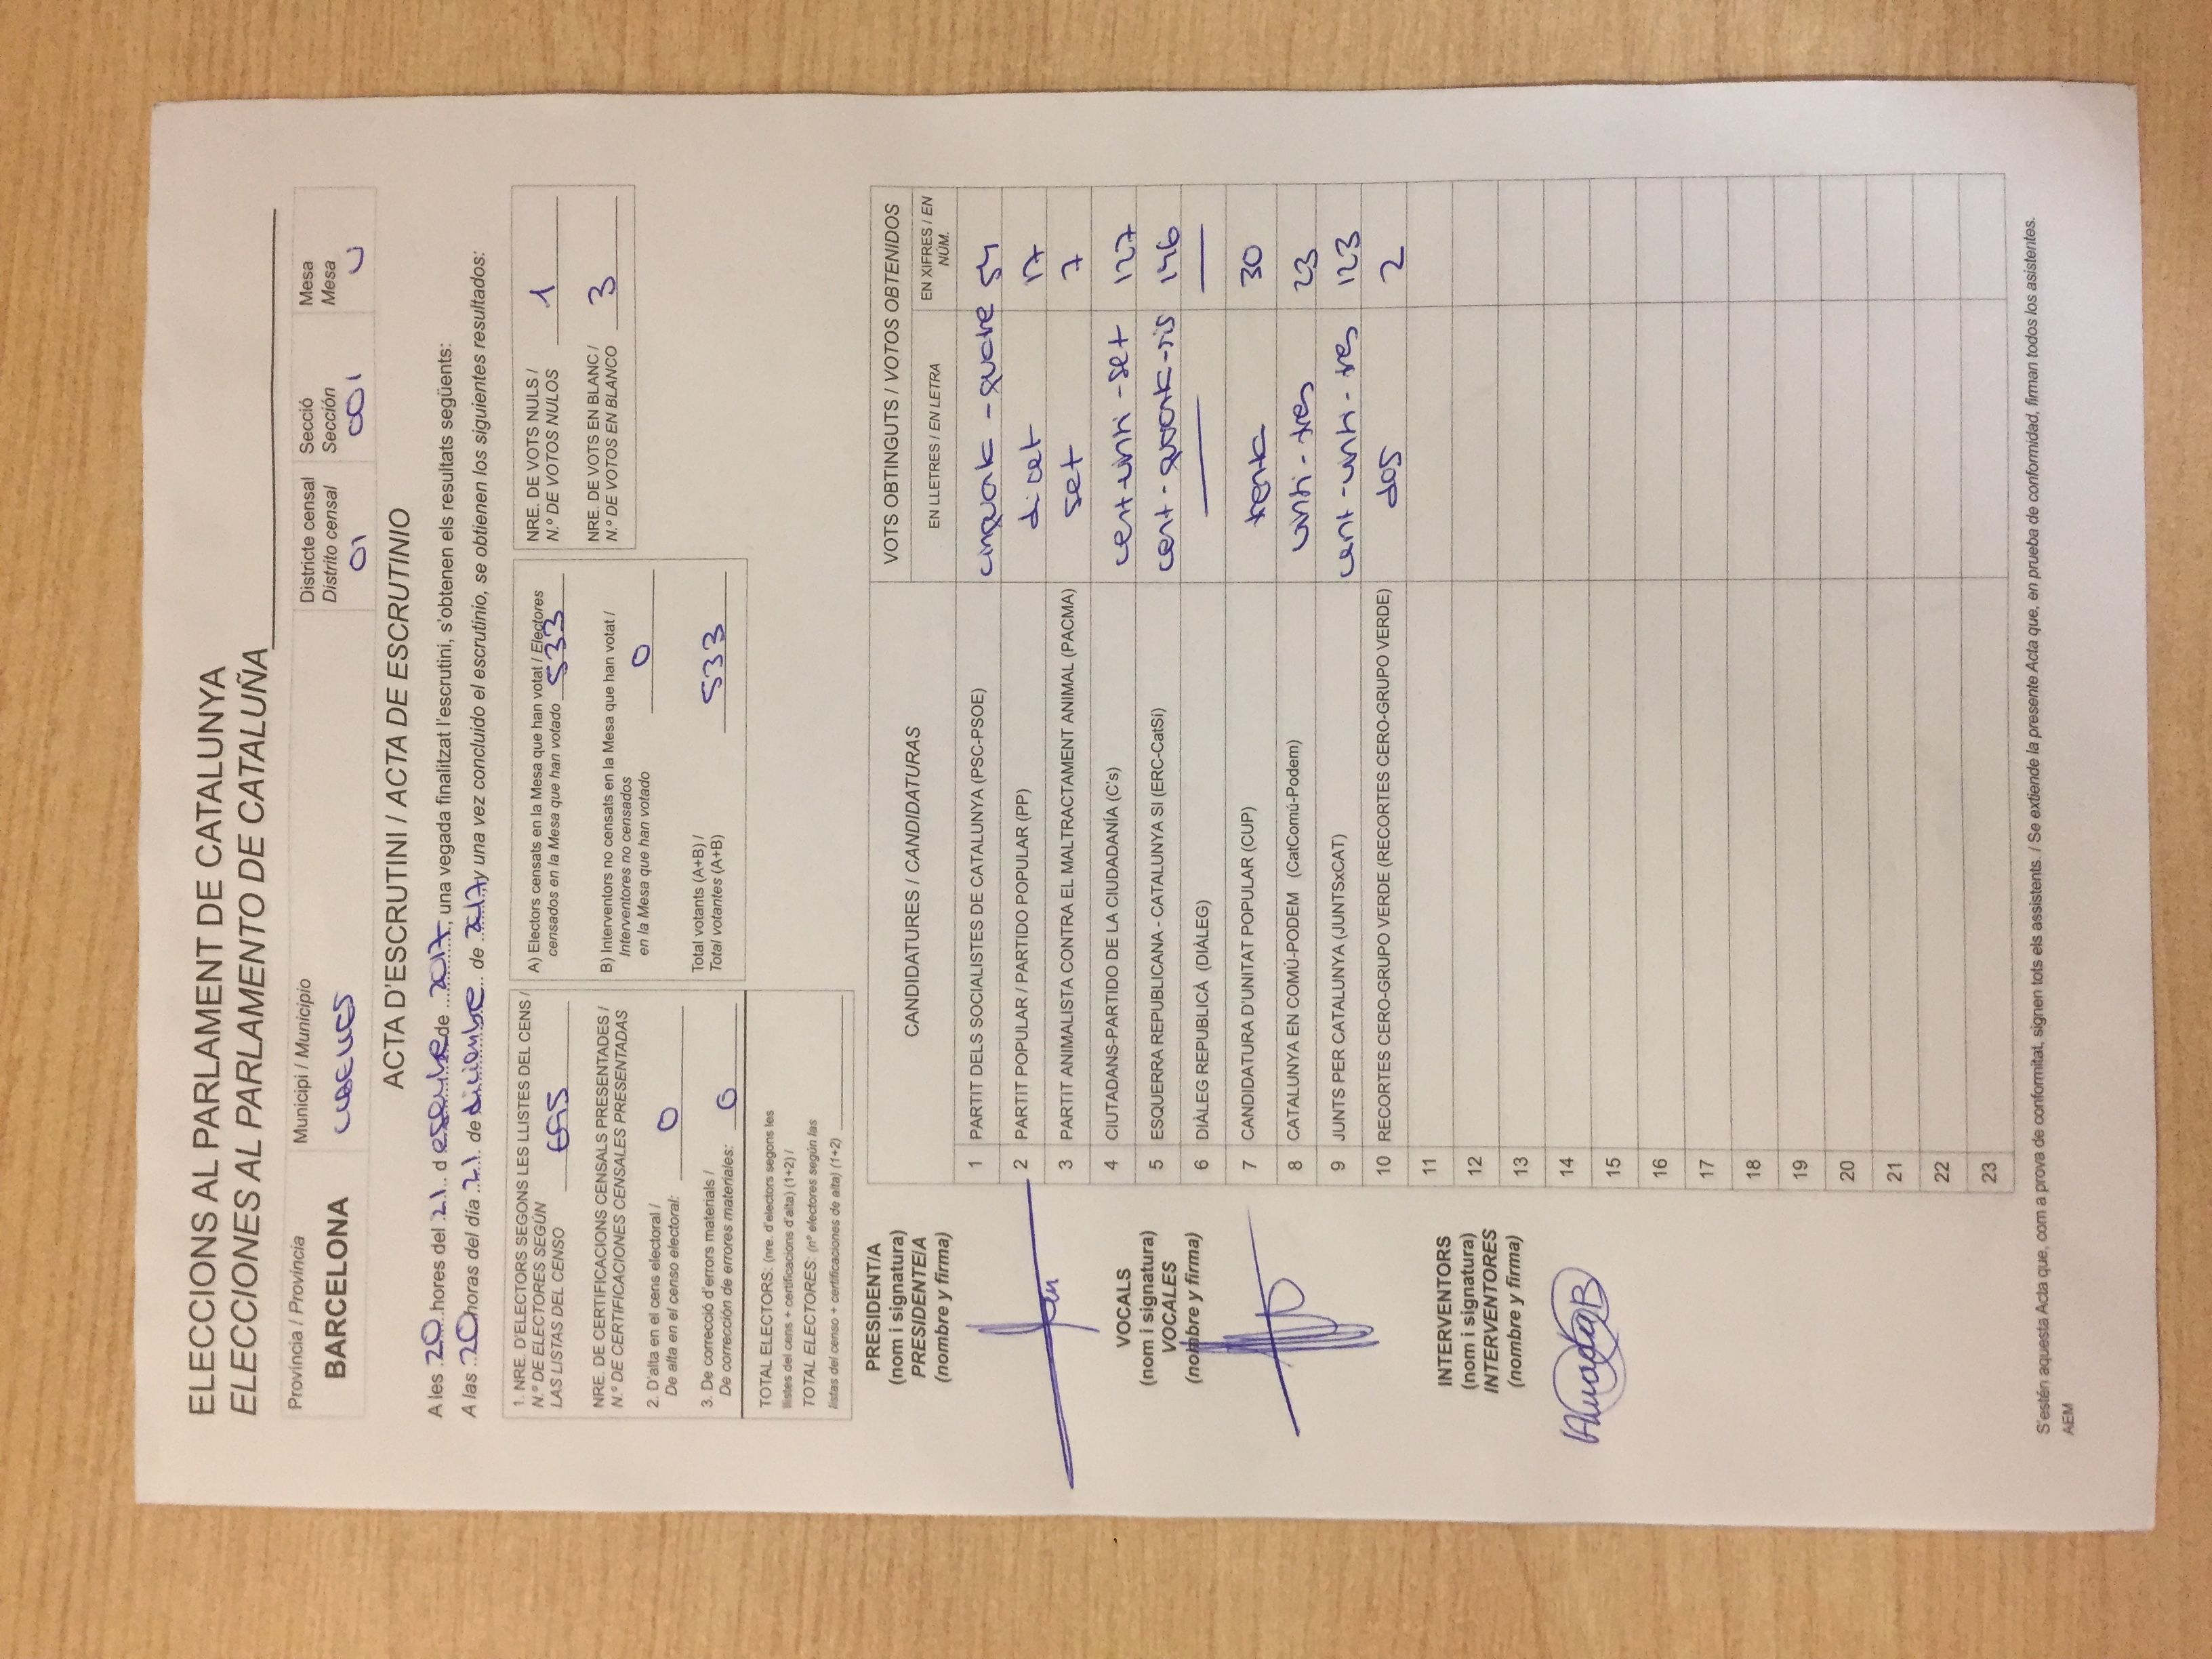 ELECCIONS AL PARLAMENT DE CATALUNYA
ELECCIONES AL PARLAMENTO DE CATALUÑA
Província / Provincia
BARCELONA
Municipi / Municipio
CUBELLES
Districte censal
Distrito censal
01
Secció
Sección
001
Mesa
Mesa
U
ACTA D'ESCRUTINI / ACTA DE ESCRUTINIO
A les 20 hores del 21 d esembre de 2017, una vegada finalitzat l'escrutini, s'obtenen els resultats següents:
A las 20 horas del día 21 de diciembre de 2017 y una vez concluido el escrutinio, se obtienen los siguientes resultados:
1. NRE. D'ELECTORS SEGONS LES LLISTES DEL CENS /
N.º DE ELECTORES SEGÚN
LAS LISTAS DEL CENSO
NRE. DE CERTIFICACIONS CENSALS PRESENTADES /
N.º DE CERTIFICACIONES CENSALES PRESENTADAS
2. D'alta en el cens electoral /
De alta en el censo electoral: 0
3. De correcció d'errors materials /
De corrección de errores materiales: 0
TOTAL ELECTORS: (nre. d'electors segons les
llistes del cens + certificacions d'alta) (1+2) /
TOTAL ELECTORES: (nº electores según las
listas del censo + certificaciones de alta) (1+2)
A) Electors censats en la Mesa que han votat / Electores
censados en la Mesa que han votado 533
B) Interventors no censats en la Mesa que han votat /
Interventores no censados
en la Mesa que han votado 0
Total votants (A+B) /
Total votantes (A+B) 533
NRE. DE VOTS NULS /
N.º DE VOTOS NULOS 1
NRE. DE VOTS EN BLANC /
N.º DE VOTOS EN BLANCO 3
PRESIDENT/A
(nom i signatura)
PRESIDENTE/A
(nombre y firma)
VOCALS
(nom i signatura)
VOCALES
(nombre y firma)
INTERVENTORS
(nom i signatura)
INTERVENTORES
(nombre y firma)
CANDIDATURES / CANDIDATURAS
VOTS OBTINGUTS / VOTOS OBTENIDOS
EN LLETRES / EN LETRA
EN XIFRES / EN
NÚM.
1 PARTIT DELS SOCIALISTES DE CATALUNYA (PSC-PSOE) cinquata - quatre 54
2 PARTIT POPULAR / PARTIDO POPULAR (PP) diset 17
3 PARTIT ANIMALISTA CONTRA EL MALTRACTAMENT ANIMAL (PACMA) set 7
4 CIUTADANS-PARTIDO DE LA CIUDADANÍA (C's) cent-vinti-set 127
5 ESQUERRA REPUBLICANA - CATALUNYA SI (ERC-CatSí) cent-quaranta-sis 146
6 DIÀLEG REPUBLICÀ (DIÀLEG) — —
7 CANDIDATURA D'UNITAT POPULAR (CUP) trenta 30
8 CATALUNYA EN COMÚ-PODEM (CatComú-Podem) vinti-tres 23
9 JUNTS PER CATALUNYA (JUNTSxCAT) cent-vinti-tres 123
10 RECORTES CERO-GRUPO VERDE (RECORTES CERO-GRUPO VERDE) dos 2
11
12
13
14
15
16
17
18
19
20
21
22
23
S'estén aquesta Acta que, com a prova de conformitat, signen tots els assistents. / Se extiende la presente Acta que, en prueba de conformidad, firman todos los asistentes.
AEM